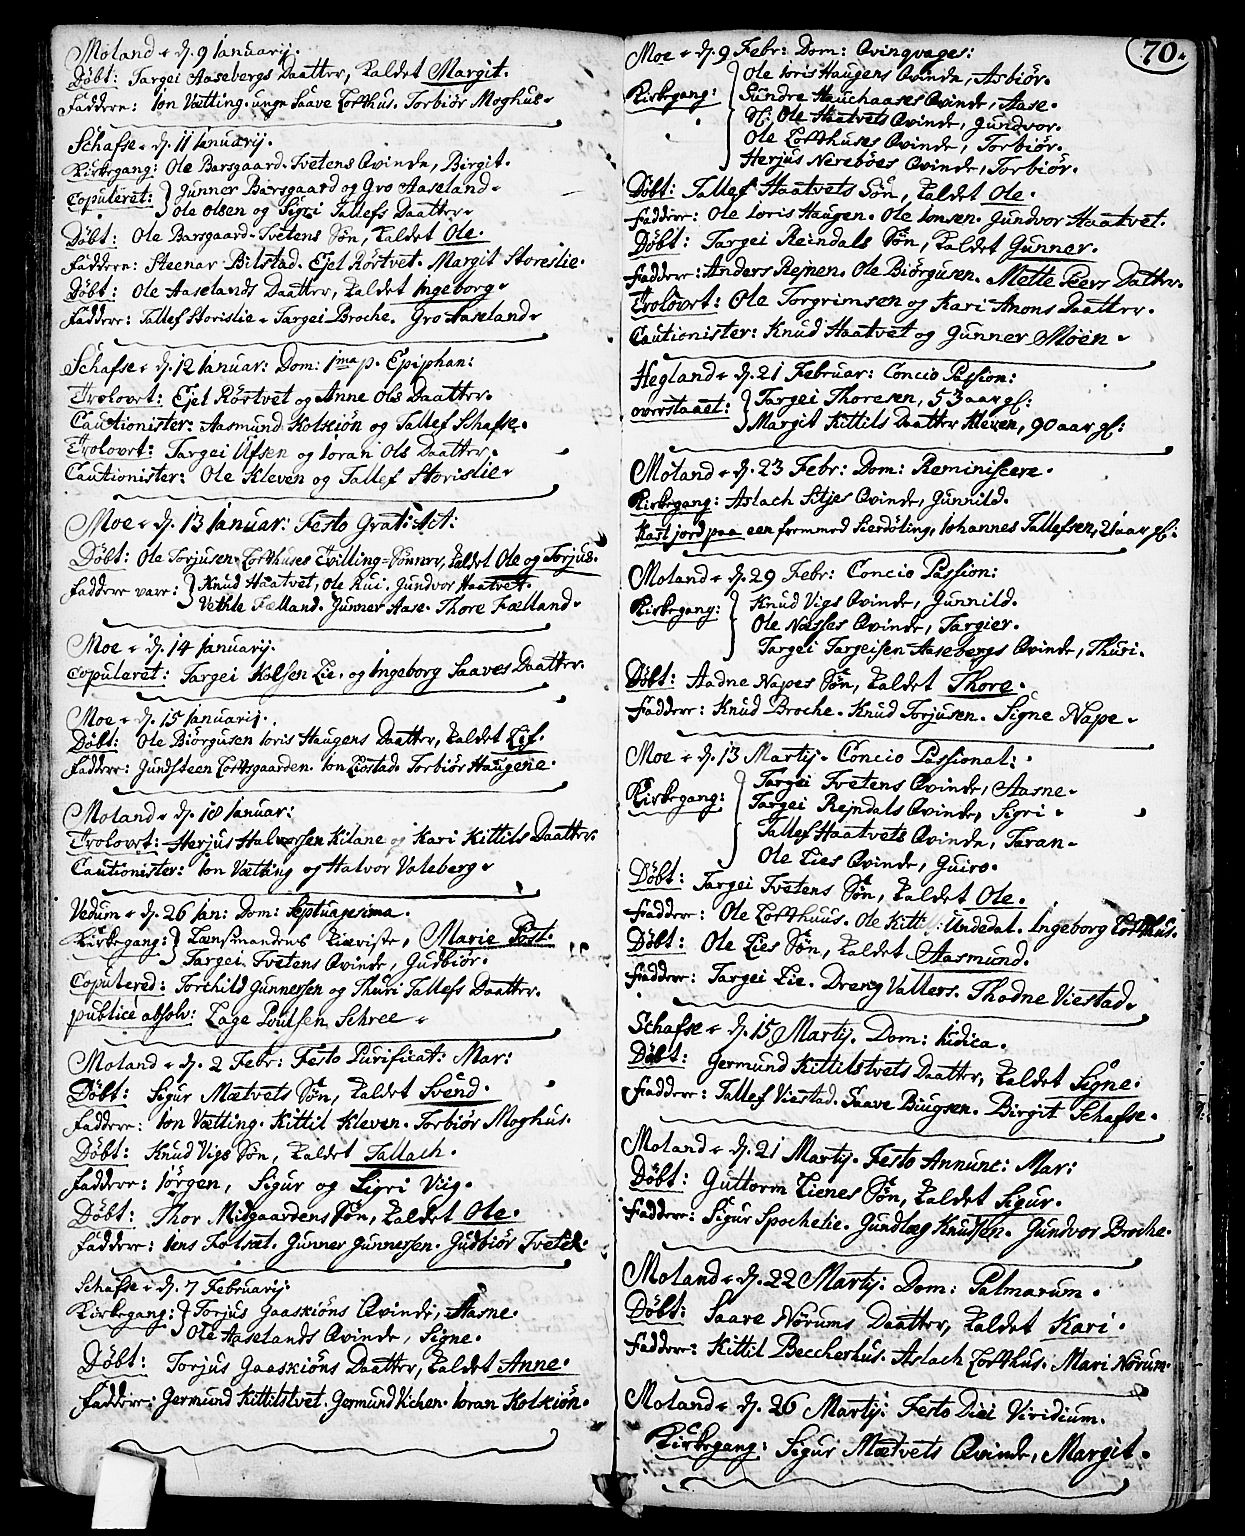 Moland d. 9 Januarij.
Döbt: Targei Aasebergs Daatter, kaldet Margit.
Faddere: Ion Vætting. unge Saave Lofthus. Torbiör Moghus.
Schafse d. 11 Januarij.
Kirkegang: Ole Barsgaard-Tvetens Qvinde, Birgit.
Copuleret: Gunner Barsgaard og Gro Aaseland.
Ole Olsen og Sigri Tallefs Daatter.
Döbt: Ole Barsgaard-Tvetens Sön, kaldet Ole.
Faddere: Steenar Bilstad. Ejel Rörtvet. Margit Storeslie.
Döbt: Ole Aaselands Daatter, kaldet Ingeborg.
Faddere: Tallef Storislie. Targei Broche. Gro Aaseland.
Schafse d. 12 Januar: Dom: 1ma p. Epiphan:
Trolovet: Ejel Rörtvet og Anne Ols Daatter.
Cautionister: Aasmund Kolskiön og Tallef Schafse.
Trolovet: Targei Ufsen og Ioran Ols Daatter.
Cautionister: Ole Kleven og Tallef Storislie.
Moe d. 13 Januar: Festo Grat: Act:
Döbt: Ole Torjusen-Lofthuses Tvilling-Sönner, kaldet Ole og Torjus.
Faddere vare: Knud Haatvet, Ole Rui. Gundvor Haatvet.
Vethle Fælland. Gunner Aase. Thore Fælland.
Moe d. 14 Januarij.
Copuleret: Targei Kolsen Lie. og Ingeborg Saaves Daatter.
Moe d. 15 Januarij.
Döbt: Ole Biörgusen Ioris Haugens Daatter, kaldet Lif.
Faddere: Gundsteen Loftsgaarden. Ion Liostad. Torbiör Haugene.
Moland d. 18 Januar:
Trolovet: Herjus Halvorsen Kilane og Kari Kittils Daatter.
Cautionister: Ion Vætting og Halvor Valeberg.
Vedum d. 26 Jan: Dom: Septuagesima.
Kirkegang: Lænsmandens Kiæriste, Marie Post.
Targei Tvetens Qvinde, Gudbiör.
Copulered: Torchild Gunnersen og Thuri Tallefs Daatter.
publicè absolv: Lage Poulsen Schree
Moland d. 2 Febr: Festo Purificat: Mar:
Döbt: Sigur Mætvets Sön, kaldet Svend.
Faddere: Ion Vætting. Kittil Kleven. Torbiör Moghus.
Döbt: Knud Vigs Sön, kaldet Tallach.
Faddere: Iörgen, Sigur og Sigri Viig.
Döbt: Thor Midgaardens Sön, kaldet Ole.
Faddere: Iens Folsæt. Gunner Gunnersen. Gudbiör Tvetek.
Schafse d. 7 Februarij.
Kirkegang: Torjus Gaaskiöns Qvinde, Aasne.
Ole Aaselands Qvinde, Signe.
Döbt: Torjus Gaaskiöns Daatter, kaldet Anne.
Faddere: Germund Kittilstvet. Germund Vichen. Ioran Kolskiön.
70.
Moe d. 9 Febr: Dom: Qvinqvages:
Kirkegang: Ole Ioris Haugens Qvinde, Asbiör.
Sundre Hauchaases Qvinde, Aase.
Ole Haatvets Qvinde, Gundvor.
Ole Lofthuses Qvinde, Torbiör.
Herjus Nereböes Qvinde, Torbiör.
Döbt: Tallef Haatvets Sön, kaldet Ole.
Faddere: Ole Ioris Haugen. Ole Ionsen. Gundvor Haatvet.
Döbt: Targei Reindals Sön, kaldet Gunner.
Faddere: Anders Rejnen. Ole Biörgusen. Mette Peers Datter.
Trolovet: Ole Torgrimsen og Kari Anons Daatter.
Cautionister: Knud Haatvet og Gunner Moen
Hegland d. 21 Februar: Concio Passion:
overstaaet: Targei Thoresen, 53 aar gl:
Margit Kittils Daatter Kleven, 90 aar gl:
Moland d. 23 Febr: Dom: Reminiscere.
Kirkegang: Aslach Sitjes Qvinde, Gunnild.
Kast jord paa een fremmed Iohannes Tallefsen, 21 aar gl:
Moland d. 29 Febr: Concio Passion:
Kirkegang: Knud Vigs Qvinde, Gunnild.
Ole Næsses Qvinde, Targier.
Targei Targeisen Aasebergs Qvinde, Thuri.
Döbt: Aadne Napes Sön, kaldet Thore.
Faddere: Knud Broche. Knud Torjusen. Signe Nape.
Moe d. 13 Martij. Concio Passional:
Kirkegang: Targei Tvetens Qvinde, Aasne.
Targei Rejndals Qvinde, Sigri
Tallef Haatvets Qvinde, Taran.
Ole Lies Qvinde, Guiro.
Döbt: Targei Tvetens Sön, kaldet Ole.
Faddere: Ole Lofthuus. Ole Kitt: Undedal. Ingeborg Lofthus.
Döbt: Ole Lies Sön, kaldet Aasmund.
Faddere: Targei Lie. Dreng Vallers. Thodne Viestad.
Schafse d. 15 Martij. Dom: Iudica.
Döbt: Germund Kittilstvets Daatter, kaldet Signe.
Faddere: Tallef Viestad. Saave Biugsen. Birgit Schafse.
Moland d. 21 Martij. Festo Annunc: Mar:
Döbt: Guttorm Lienes Sön, kaldet Sigur.
Faddere: Sigur Spochelie. Gundlæg Knudsen. Gundvor Broche.
Moland d. 22 Martij: Dom: Palmarum.
Döbt: Saave Nörums Daatter, kaldet Kari.
Faddere: Kittil Beccherhus. Aslach Lofthus. Mari Nörum.
Moland d. 26 Martij: Festo Diei Viridium.
Kirkegang: Sigur Mætvets Qvinde, Margit.